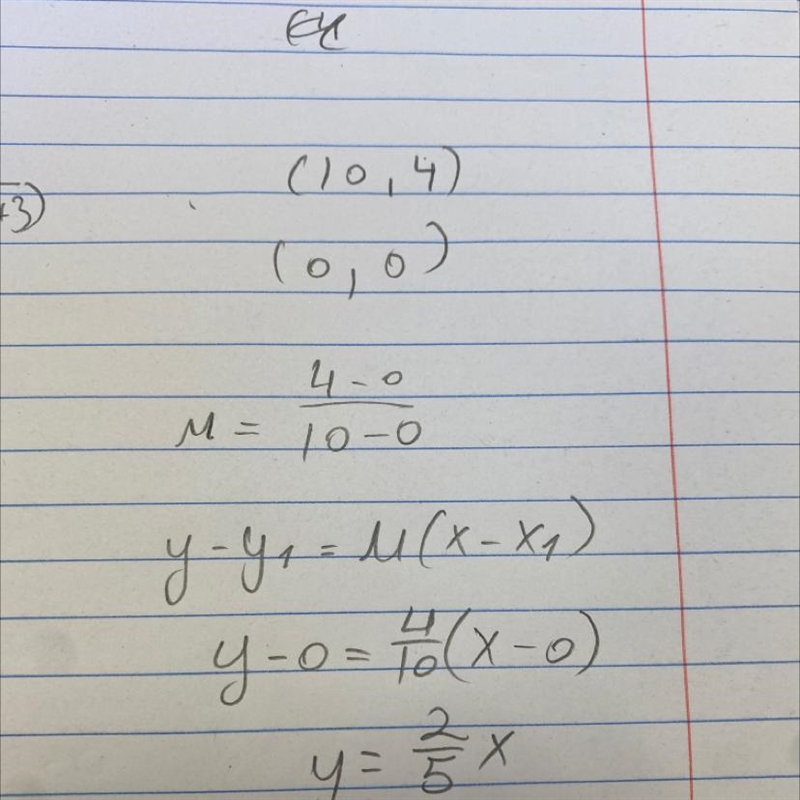 (10, 4)
3)
(0, 0)
M = \frac{4-0}{10-0}
y - y₁ = M(x - x₁)
y - 0 = \frac{4}{10}(x - 0)
y = \frac{2}{5}x